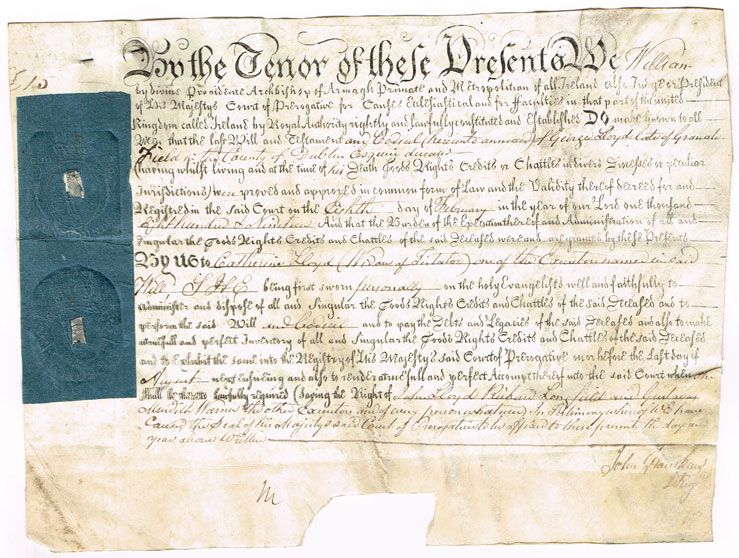 By the Tenor of these Presents We William
by divine Providence Archbishop of Armagh Primate and Metropolitan of all Ireland also Judge or President
of His Majestys Court of Prerogative for Causes Ecclesiastical and for Faculties in that part of the united
Kingdom called Ireland by Royal Authority rightly and lawfully constituted and Established DO make known to all
Men that the last Will and Testament and Codicil (hereunto annexed) of George Lloyd late of
Field in the County of Dublin Esquire deceased
(having whilst living and at the time of his Death Goods Rights Credits or Chattles in divers Diocesses or peculiar
Jurisdictions) were proved and approved in common form of Law and the Validity thereof decreed for and
Registered in the said Court on the Eighth day of February in the year of our Lord one thousand
Eight Hundred & Nineteen And that the Burden of the Execution thereof and Administration of all and
singular the Goods Rights Credits and Chattles of the said Deceased were and are granted by these Presents
By US to Catherine Lloyd (Widow of Testator) one of the Executors named in said
Will SHE being first sworn personally on the holy Evangelists well and faithfully to
administer and dispose of all and Singular the Goods Rights Credits and Chattles of the said Deceased and to
perform the said Will and Codicil and to pay the Debts and Legacies of the said Deceased and also to make
a true full and perfect Inventory of all and Singular the Goods Rights Credits and Chattles of the said Deceased
and to Exhibit the same into the Registry of His Majestys said Court of Prerogative on or before the Last day of
August next ensuing and also to render a true full and perfect Account thereof unto the said Court when
shall be thereto lawfully required (saving the Right of John Lloyd Richard Longfield and
Warner the other Executors and of any person whatsoever) In Testimony whereof WE have
Caused the Seal of his Majestys said Court of Prerogative to be affixed to these presents the day and
year above Written
John
M